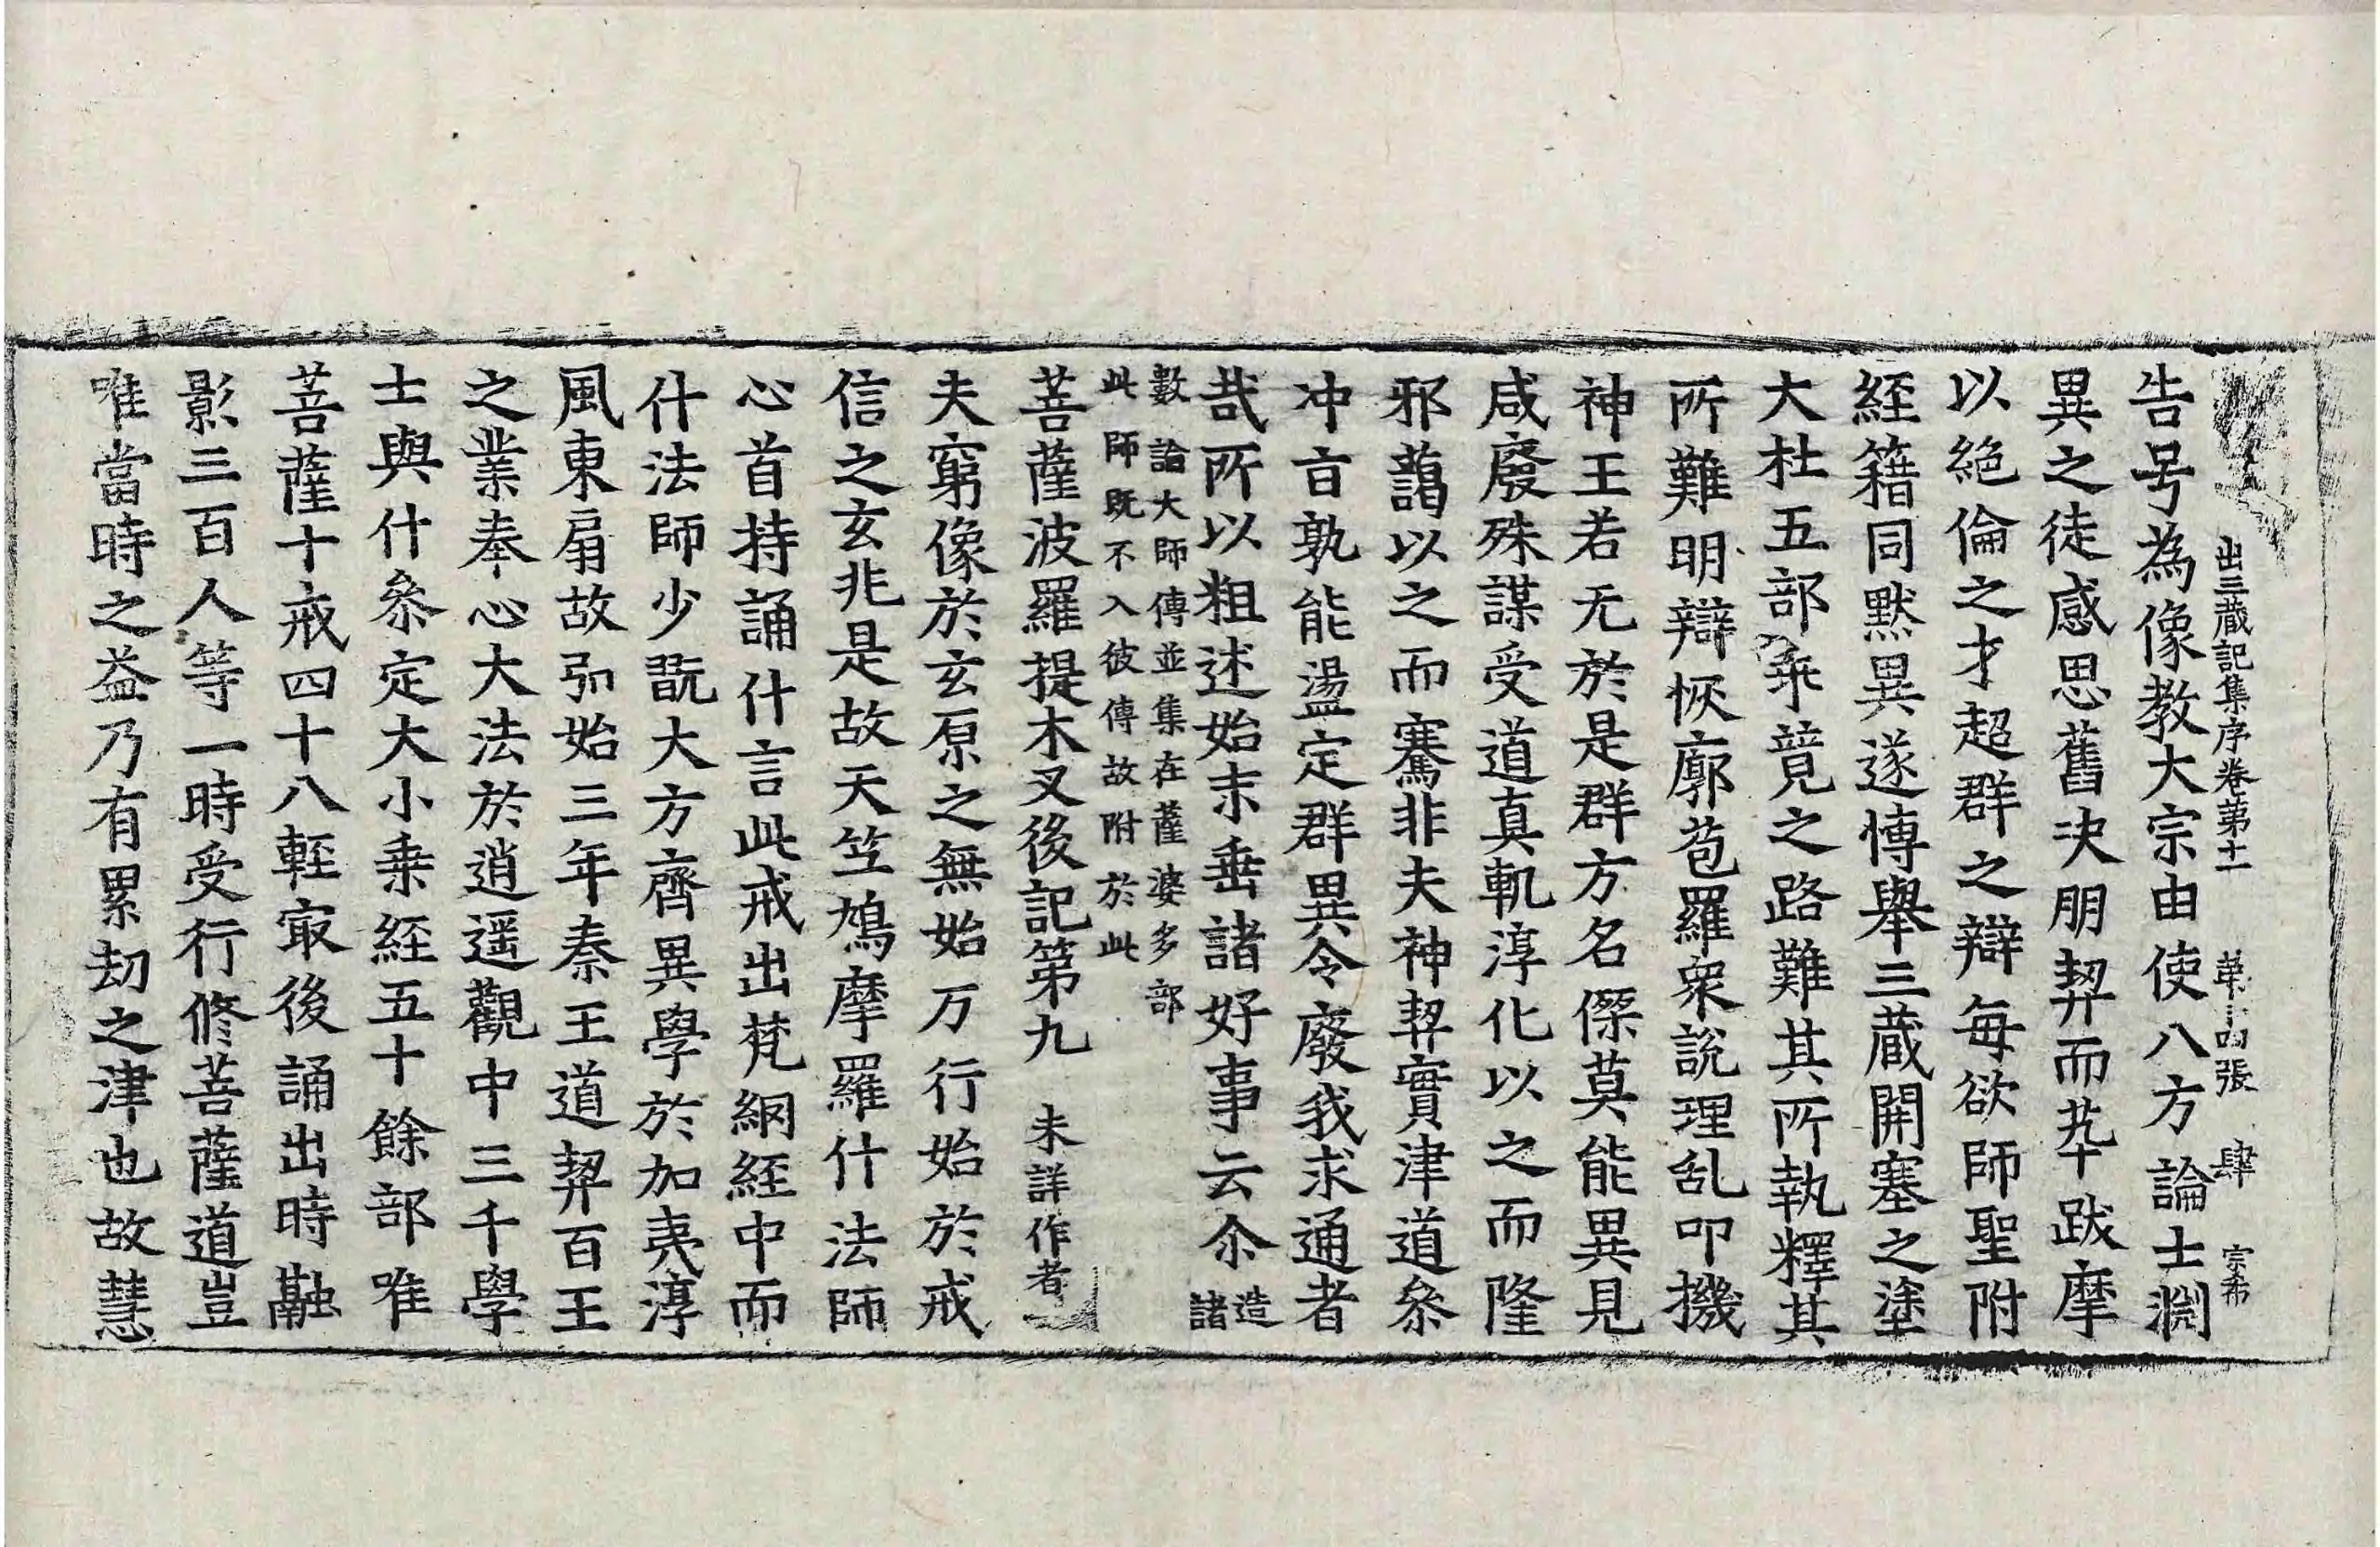 出三藏記集序卷第十一 第十四張 肆 宗希
告号為像教大宗由使八方論士淵
異之徒感思舊決朋契而萃跋摩
以絕倫之才超群之辯每欲師聖附
經籍同默異遂慱舉三藏開塞之塗
大杜五部乖競之路難其所執釋其
所難明辯恢廓苞羅衆說理乱叩機
神王若无於是群方名傑莫能異見
咸廢殊謀受道真軌淳化以之而隆
邪藹以之而騫非夫神契實津道叅
冲旨孰能盪定群異令廢我求通者
哉所以粗述始末垂諸好事云尒造諸
數論大師傳並集在薩婆多部
此師既不入彼傳故附於此
菩薩波羅提木叉後記第九 未詳作者
夫窮像於玄原之無始万行始於戒
信之玄非是故天竺鳩摩羅什法師
心首持誦什言此戒出梵網經中而
什法師少翫大方齊異學於加夷淳
風東扇故弘始三年秦王道契百王
之業奉心大法於逍遥觀中三千學
士與什叅定大小乗經五十餘部唯
菩薩十戒四十八輕冣後誦出時融
影三百人等一時受行修菩薩道豈
唯當時之益乃有累劫之津也故慧